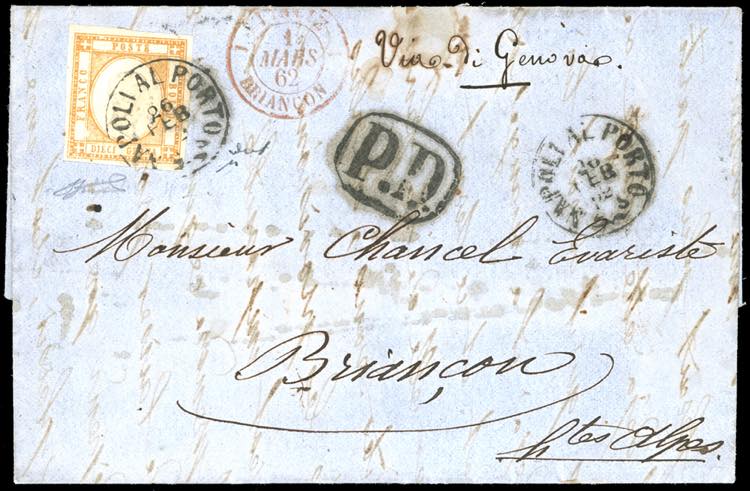 POSTE
FRANCO
BOLLO
DIECI
NAPOLI AL PORTO
26
FEB
MARS
62
BRIANÇON
Via di Genova.
P.D.
NAPOLI AL PORTO
26
FEB
62
Monsieur Chancel Evariste
Briançon
htes Alpes.